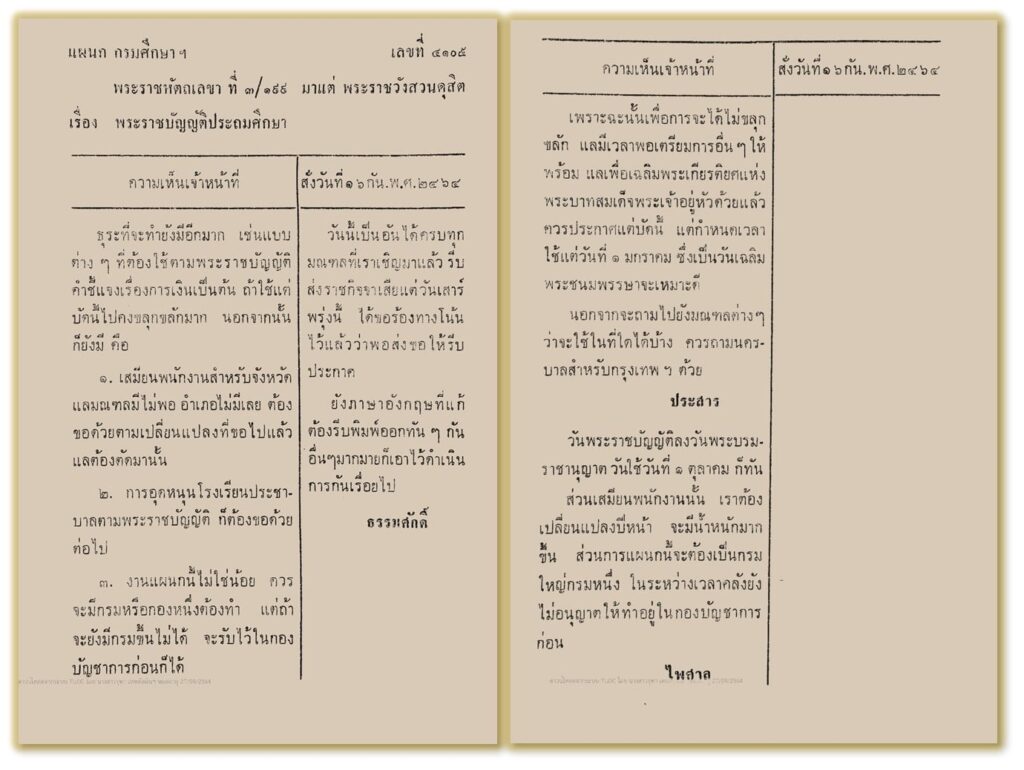 แผนก กรมศึกษา ฯ เลขที่ ๔๑๐๕
พระราชหัตถเลขา ที่ ๓/๑๙๙ มาแต่ พระราชวังสวนดุสิต
เรื่อง พระราชบัญญัติประถมศึกษา
ความเห็นเจ้าหน้าที่
ธุระที่จะทำยังมีอีกมาก เช่นแบบ
ต่าง ๆ ที่ต้องใช้ตามพระราชบัญญัติ
คำชี้แจงเรื่องการเงินเป็นต้น ถ้าใช้แต่
บัดนี้ไปคงขลุกขลักมาก นอกจากนั้น
ก็ยังมี คือ
๑. เสมียนพนักงานสำหรับจังหวัด
แลมณฑลมีไม่พอ อำเภอไม่มีเลย ต้อง
ขอด้วยตามเปลี่ยนแปลงที่ขอไปแล้ว
แลต้องคัดมานั้น
๒. การอุดหนุนโรงเรียนประชา-
บาลตามพระราชบัญญัติ ก็ต้องขอด้วย
ต่อไป
๓. งานแผนกนี้ไม่ใช่น้อย ควร
จะมีกรมหรือกองหนึ่งต้องทำ แต่ถ้า
จะยังมีกรมขึ้นไม่ได้ จะรับไว้ในกอง
บัญชาการก่อนก็ได้
สั่งวันที่ ๑๖ กัน.พ.ศ.๒๔๖๔
วันนี้เป็นอันได้ครบทุก
มณฑลที่เราเชิญมาแล้ว รีบ
ส่งราชกิจจาเสียแต่วันเสาร์
พรุ่งนี้ ได้ขอร้องทางโน้น
ไว้แล้วว่าพอส่งขอให้รีบ
ประกาศ
ยังภาษาอังกฤษที่แก้
ต้องรีบพิมพ์ออกทัน ๆ กัน
อื่นๆมากมายก็เอาไว้ดำเนิน
การกันเรื่อยไป
ธรรมศักดิ์
ความเห็นเจ้าหน้าที่
เพราะฉะนั้นเพื่อการจะได้ไม่ขลุก
ขลัก แลมีเวลาพอเตรียมการอื่น ๆ ให้
พร้อม แลเพื่อเฉลิมพระเกียรติยศแห่ง
พระบาทสมเด็จพระเจ้าอยู่หัวด้วยแล้ว
ควรประกาศแต่บัดนี้ แต่กำหนดเวลา
ใช้แต่วันที่ ๑ มกราคม ซึ่งเป็นวันเฉลิม
พระชนมพรรษาจะเหมาะดี
นอกจากจะถามไปยังมณฑลต่างๆ
ว่าจะใช้ในที่ใดได้บ้าง ควรถามนคร-
บาลสำหรับกรุงเทพ ฯ ด้วย
ประสาร
วันพระราชบัญญัติลงวันพระบรม-
ราชานุญาต วันใช้วันที่ ๑ ตุลาคม ก็ทัน
ส่วนเสมียนพนักงานนั้น เราต้อง
เปลี่ยนแปลงปีหน้า จะมีน้ำหนักมาก
ขึ้น ส่วนการแผนกนี้จะต้องเป็นกรม
ใหญ่กรมหนึ่ง ในระหว่างเวลาคลังยัง
ไม่อนุญาตให้ทำอยู่ในกองบัญชาการ
ก่อน
ไพศาล
สั่งวันที่ ๑๖ กัน.พ.ศ.๒๔๖๔